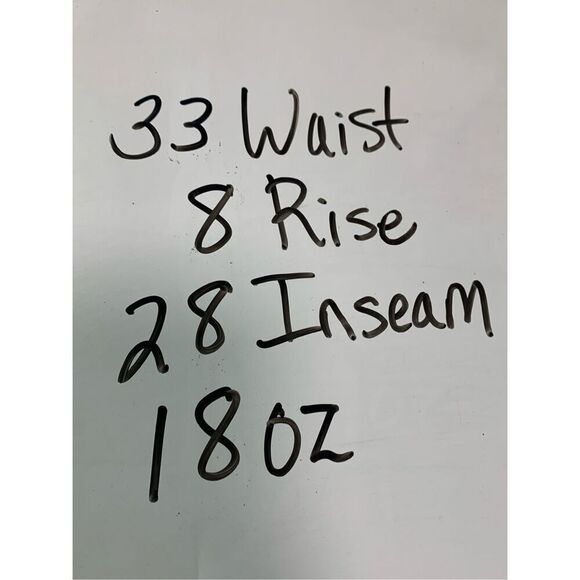 33 Waist
8 Rise
28 Inseam
18 oz